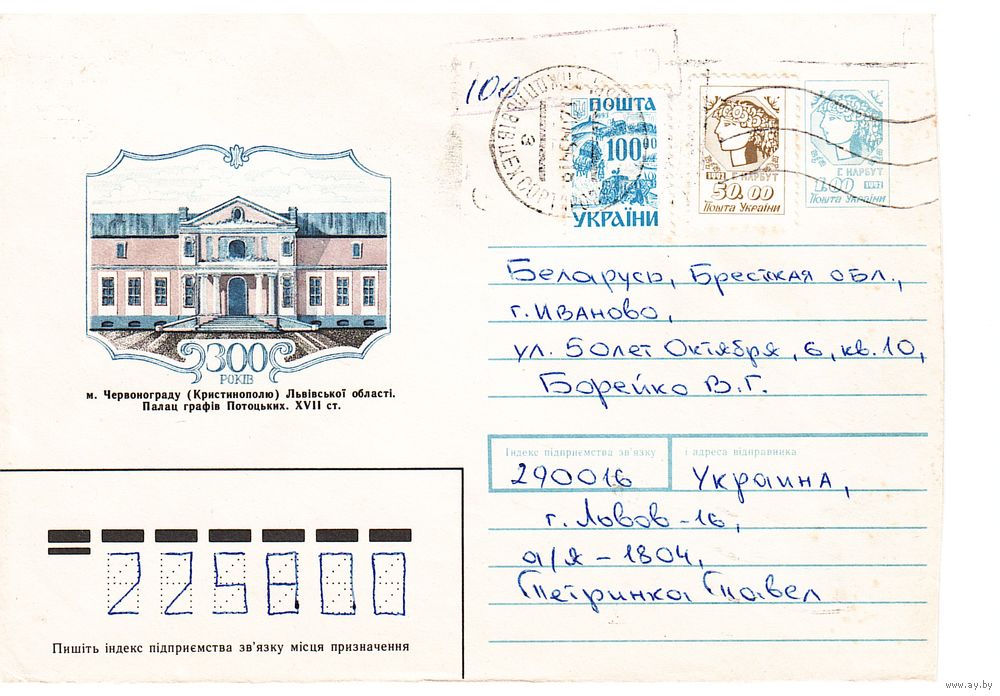 100
ПОШТА
100
УКРАЇНИ
1992
Г. НАРБУТ
50.00
ПОШТА УКРАЇНИ
Г. НАРБУТ
1.00 1992
ПОШТА УКРАЇНИ
300
РОКІВ
м. Червонограду (Кристинополю) Львівської області.
Палац графів Потоцьких. XVII ст.
Беларусь, Брестская обл.,
г. Иваново,
ул. 50 лет Октября, 6, кв. 10,
Борейко В.Г.
Індекс підприємства зв'язку і адреса відправника
290016 Украина,
г. Львов-16,
а/я - 1804,
Петринка Павел
225800
Пишіть індекс підприємства зв'язку місця призначення
www.ay.by